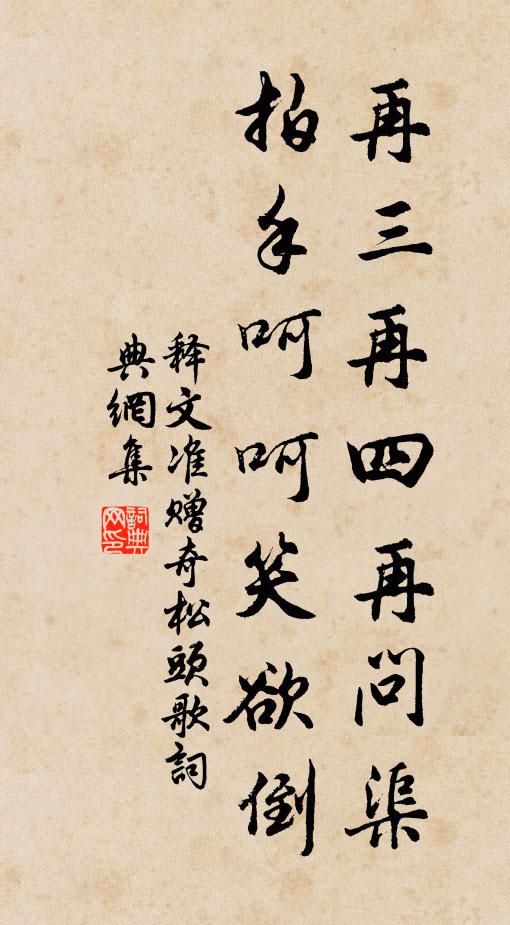 再三再四再问渠
拍手呵呵笑欲倒
释文准赠奇松头歌詞
典網集
詞典
网印